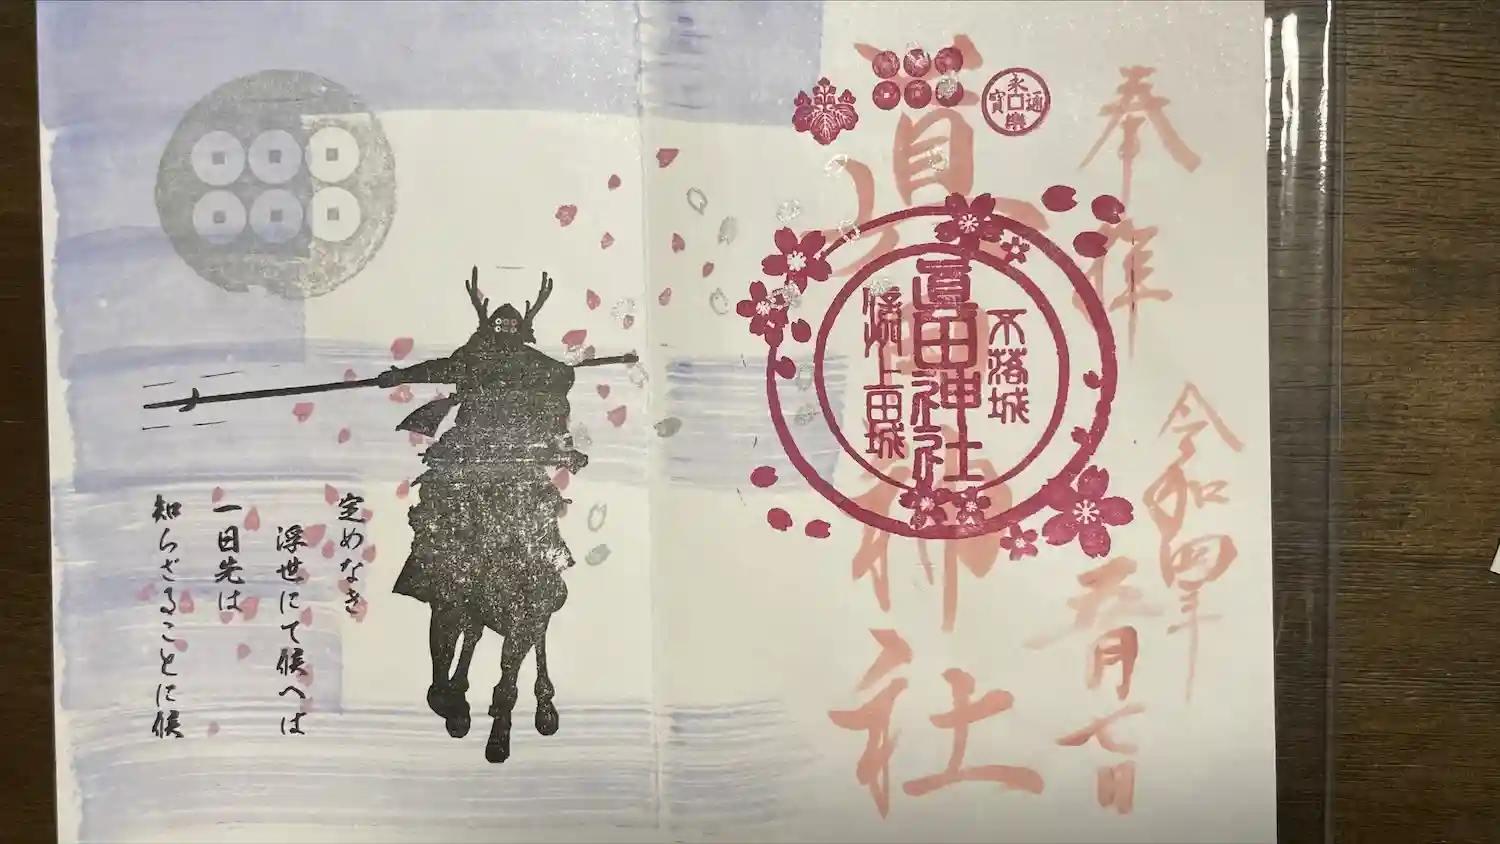 奉拝
令和四年
五月七日
眞田神社
永樂通寳
不落城
眞田神社
信州上田城
定めなき
浮世にて候へば
一日先は
知らざることに候